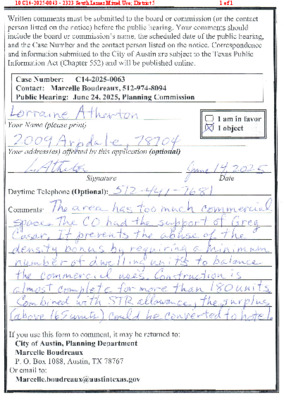 10 C14-2025-0063 - 2323 South Lamar Mixed Use; District 5 1 of 1
Written comments must be submitted to the board or commission (or the contact
person listed on the notice) before the public hearing. Your comments should
include the board or commission's name, the scheduled date of the public hearing,
and the Case Number and the contact person listed on the notice. Correspondence
and information submitted to the City of Austin are subject to the Texas Public
Information Act (Chapter 552) and will be published online.
Case Number: C14-2025-0063
Contact: Marcelle Boudreaux, 512-974-8094
Public Hearing: June 24, 2025, Planning Commission
Lorraine Atherton
Your Name (please print)
I am in favor
I object
2009 Arpdale, 78704
Your address(es) affected by this application (optional)
L. Atherton June 14 2025
Signature Date
Daytime Telephone (Optional): 512-447-7681
Comments: The area has too much commercial
space. The CO had the support of Greg
It prevents the abuse of the
density bonus by requiring a minimum
number of dwelling units to balance
the commercial uses. Contruction is
almost complete for more than 180 units
Combined with STR allowance, the surplus
(above 165 units) could be converted to hotel.
If you use this form to comment, it may be returned to:
City of Austin, Planning Department
Marcelle Boudreaux
P. O. Box 1088, Austin, TX 78767
Or email to:
Marcelle.boudreaux@austintexas.gov